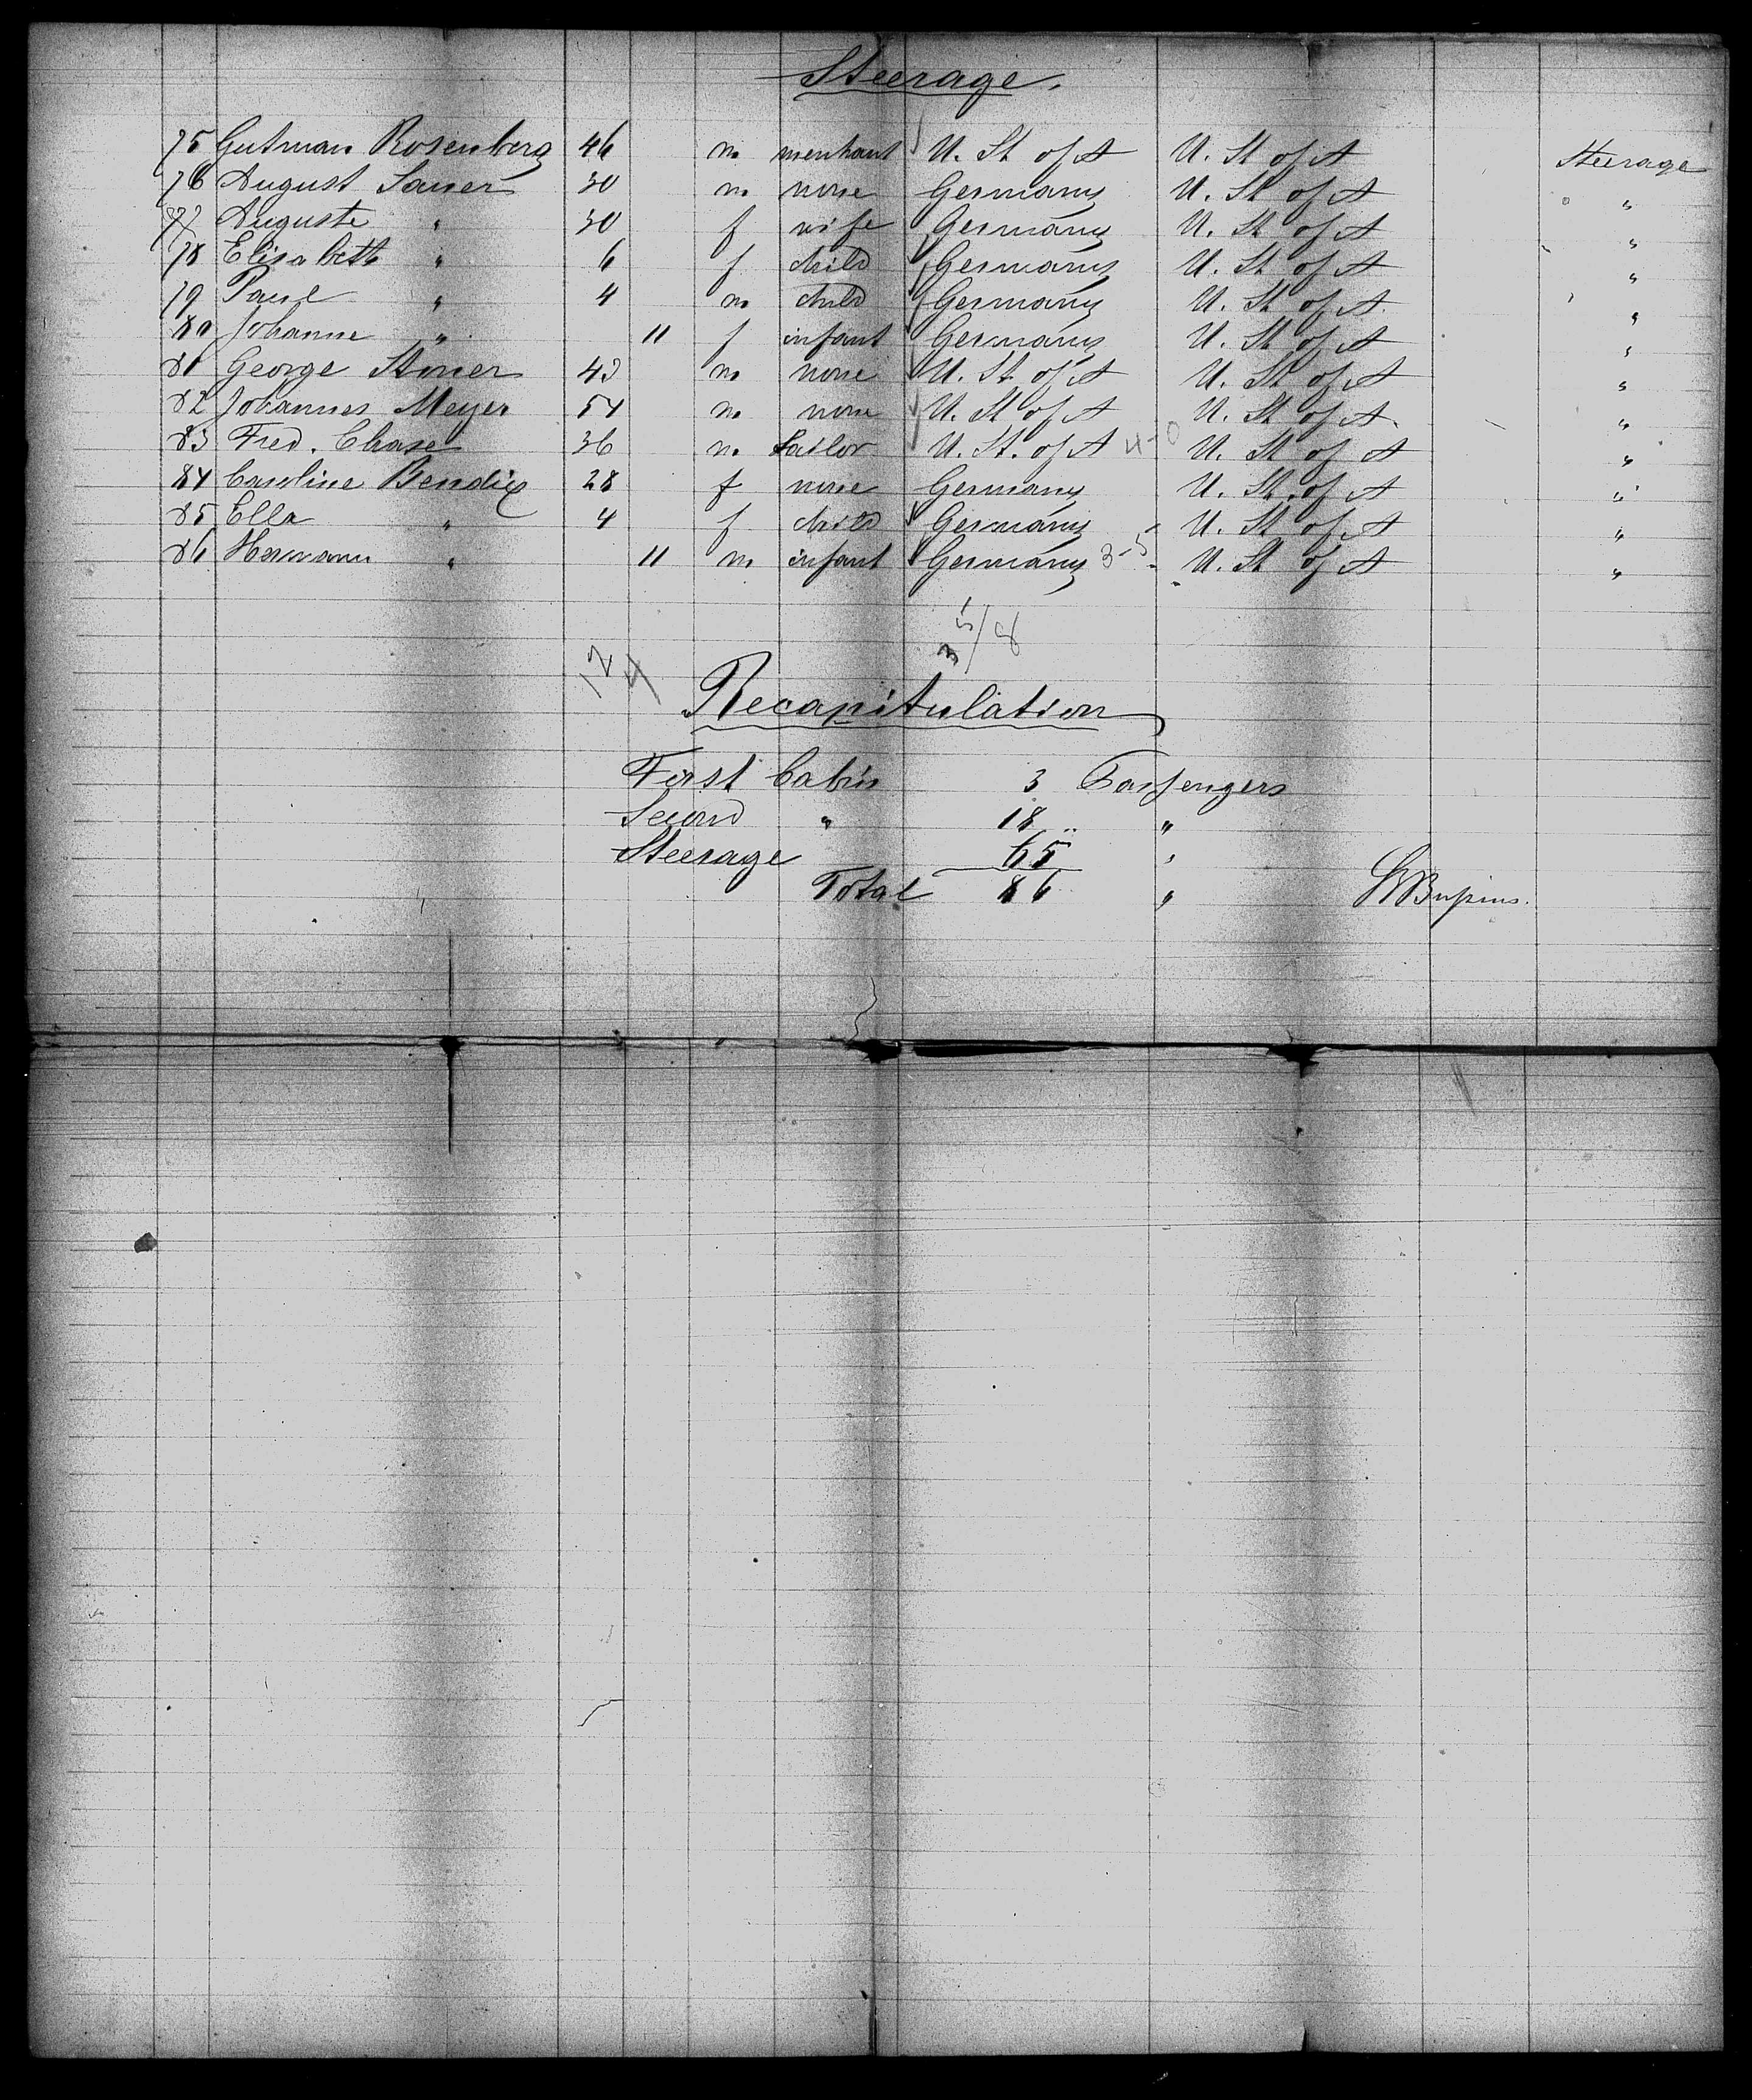 Steerage.
75 Gutman Rosenberg 46 m merchant U. St of A U. St of A Steerage
76 August Sauer 30 m none Germany U. St of A "
77 Auguste " 30 f wife Germany U. St of A "
78 Elisabeth " 6 f child Germany U. St of A "
79 Paul " 4 m child Germany U. St of A. "
80 Johanne " 11 f infant Germany U. St of A "
81 George Stoner 43 m none U. St. of A U. St of A "
82 Johannes Meyer 54 m none U. St of A U. St of A. "
83 Fred. Chase 36 m Sailor U. St. of A 4-0 U. St of A "
84 Caroline Bendix 28 f none Germany U. St. of A "
85 Ella " 4 f child Germany U. St of A "
86 Hermann " 11 m infant Germany 3-5 U. St of A "
5/8
3
12
4
Recapitulation
First Cabin 3 Passengers
Second " 18 "
Steerage 65 "
Total 86 "